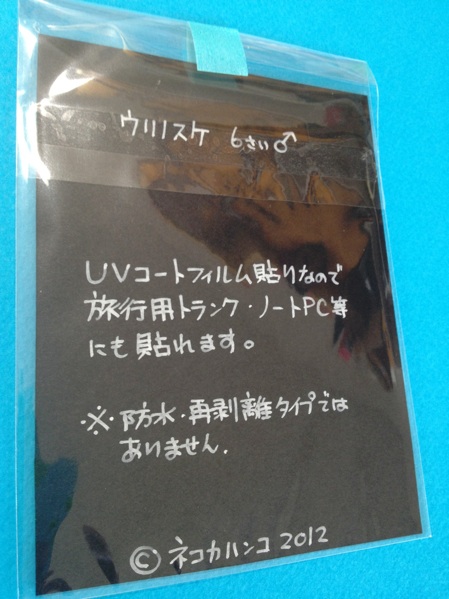 ウリノスケ 6さい♂
UVコートフィルム貼りなので
旅行用トランク・ノートPC等
にも貼れます。
※・防水・再剥離タイプでは
ありません.
© ネコカハンコ 2012